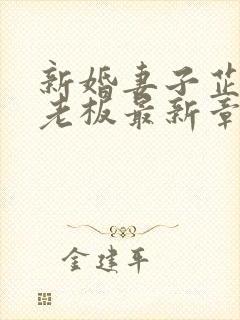 新婚妻子芷
老板最新章
金建平